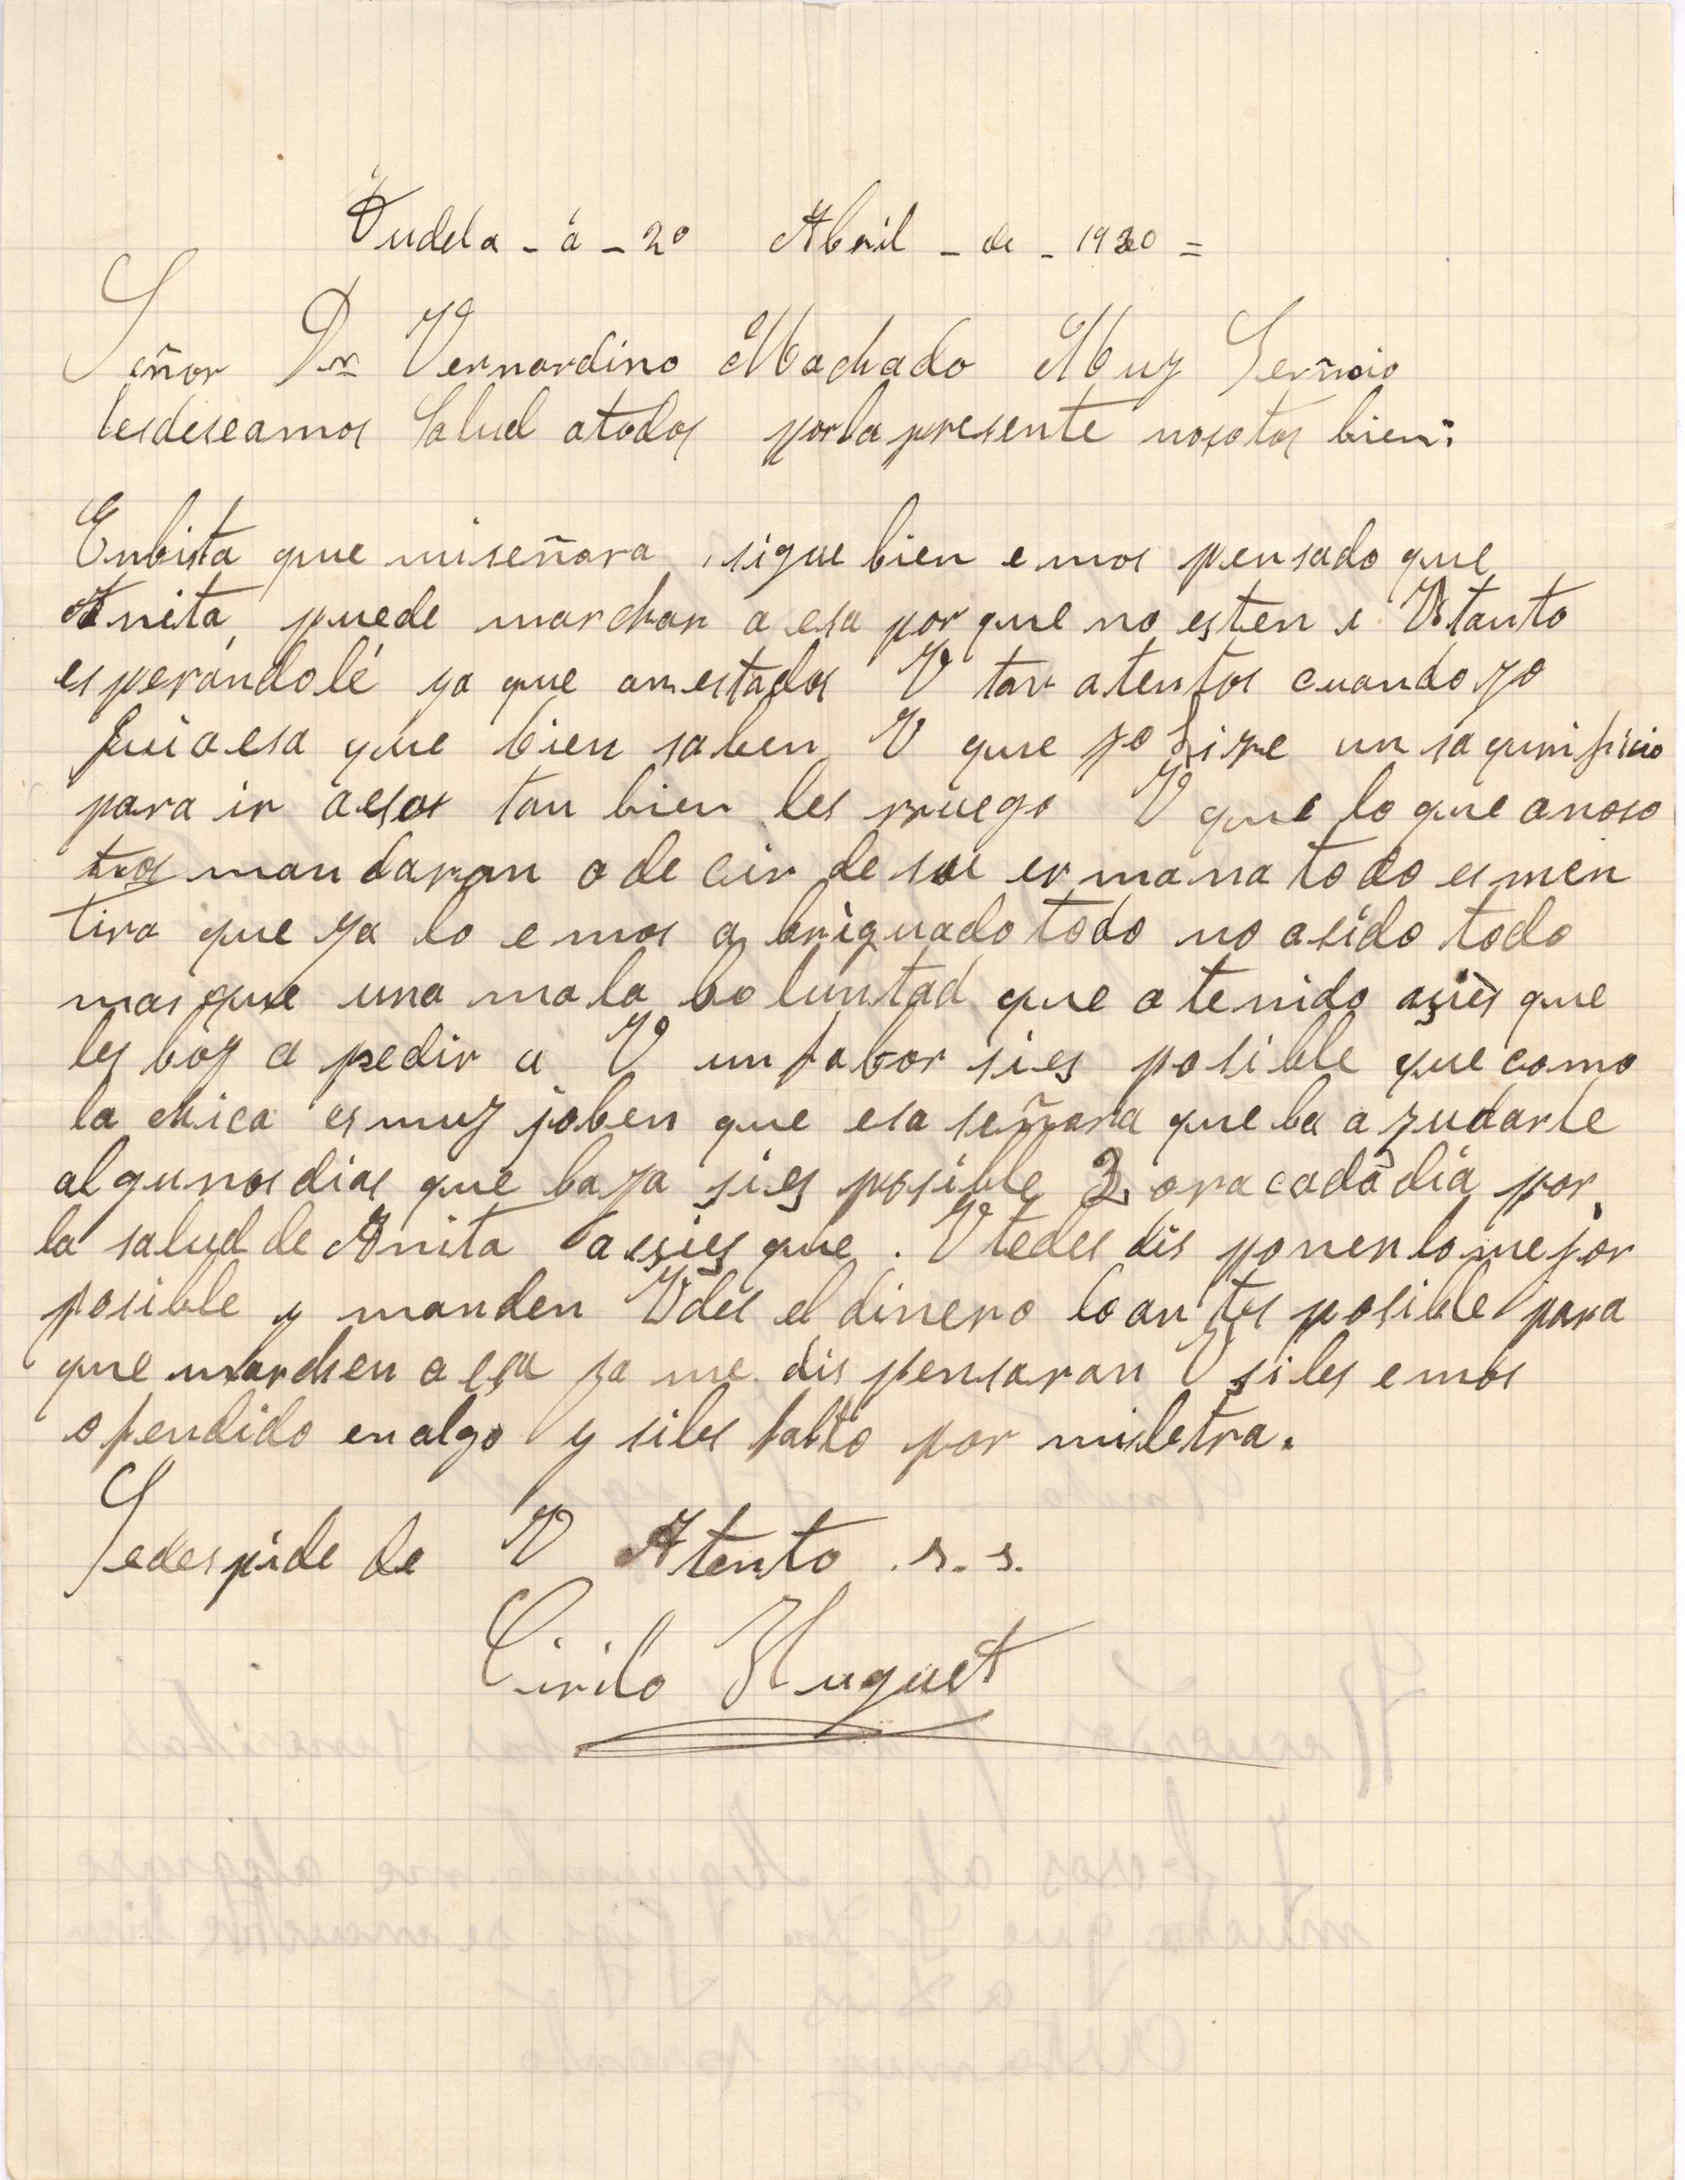 Tudela - á - 20 Abril - de - 1930 =
Señor Dr Vernardino Machado Muy Serñoio
lesdeseamos Salud atodos porla presente nosotos bien:
Enbista que miseñora, sigue bien emos pensado que
Anita, puede marchar a esa por que no esten s Vs tanto
esperándolé ya que an estados V tan atentos cuando yo
fui a esa que bien saben V que yo hize un saqurificio
para ir á esas tan bien les rruego V que lo que anoso
tros mandaran a de cir de su er mana todo es men
tira que ya lo emos abriguado todo no a sido todo
mas que una mala boluntad que a tenido asiès que
les boy a pedir a V un fabor sies posible que como
la chica es muy joben que esa señora que ba a yudarle
algunos dias que baya sies posible 2 ora cada dia por
la salud de Anita asies que. Vtedes dis ponen lo mejor
posible y manden Vdes el dinero lo antes posible para
que marchen a esa ya me dis pensaran V si les emos
ofendido en algo y siles falto por misletra.
Sedespide de V Atento .s.s.
Cirilo Huguet